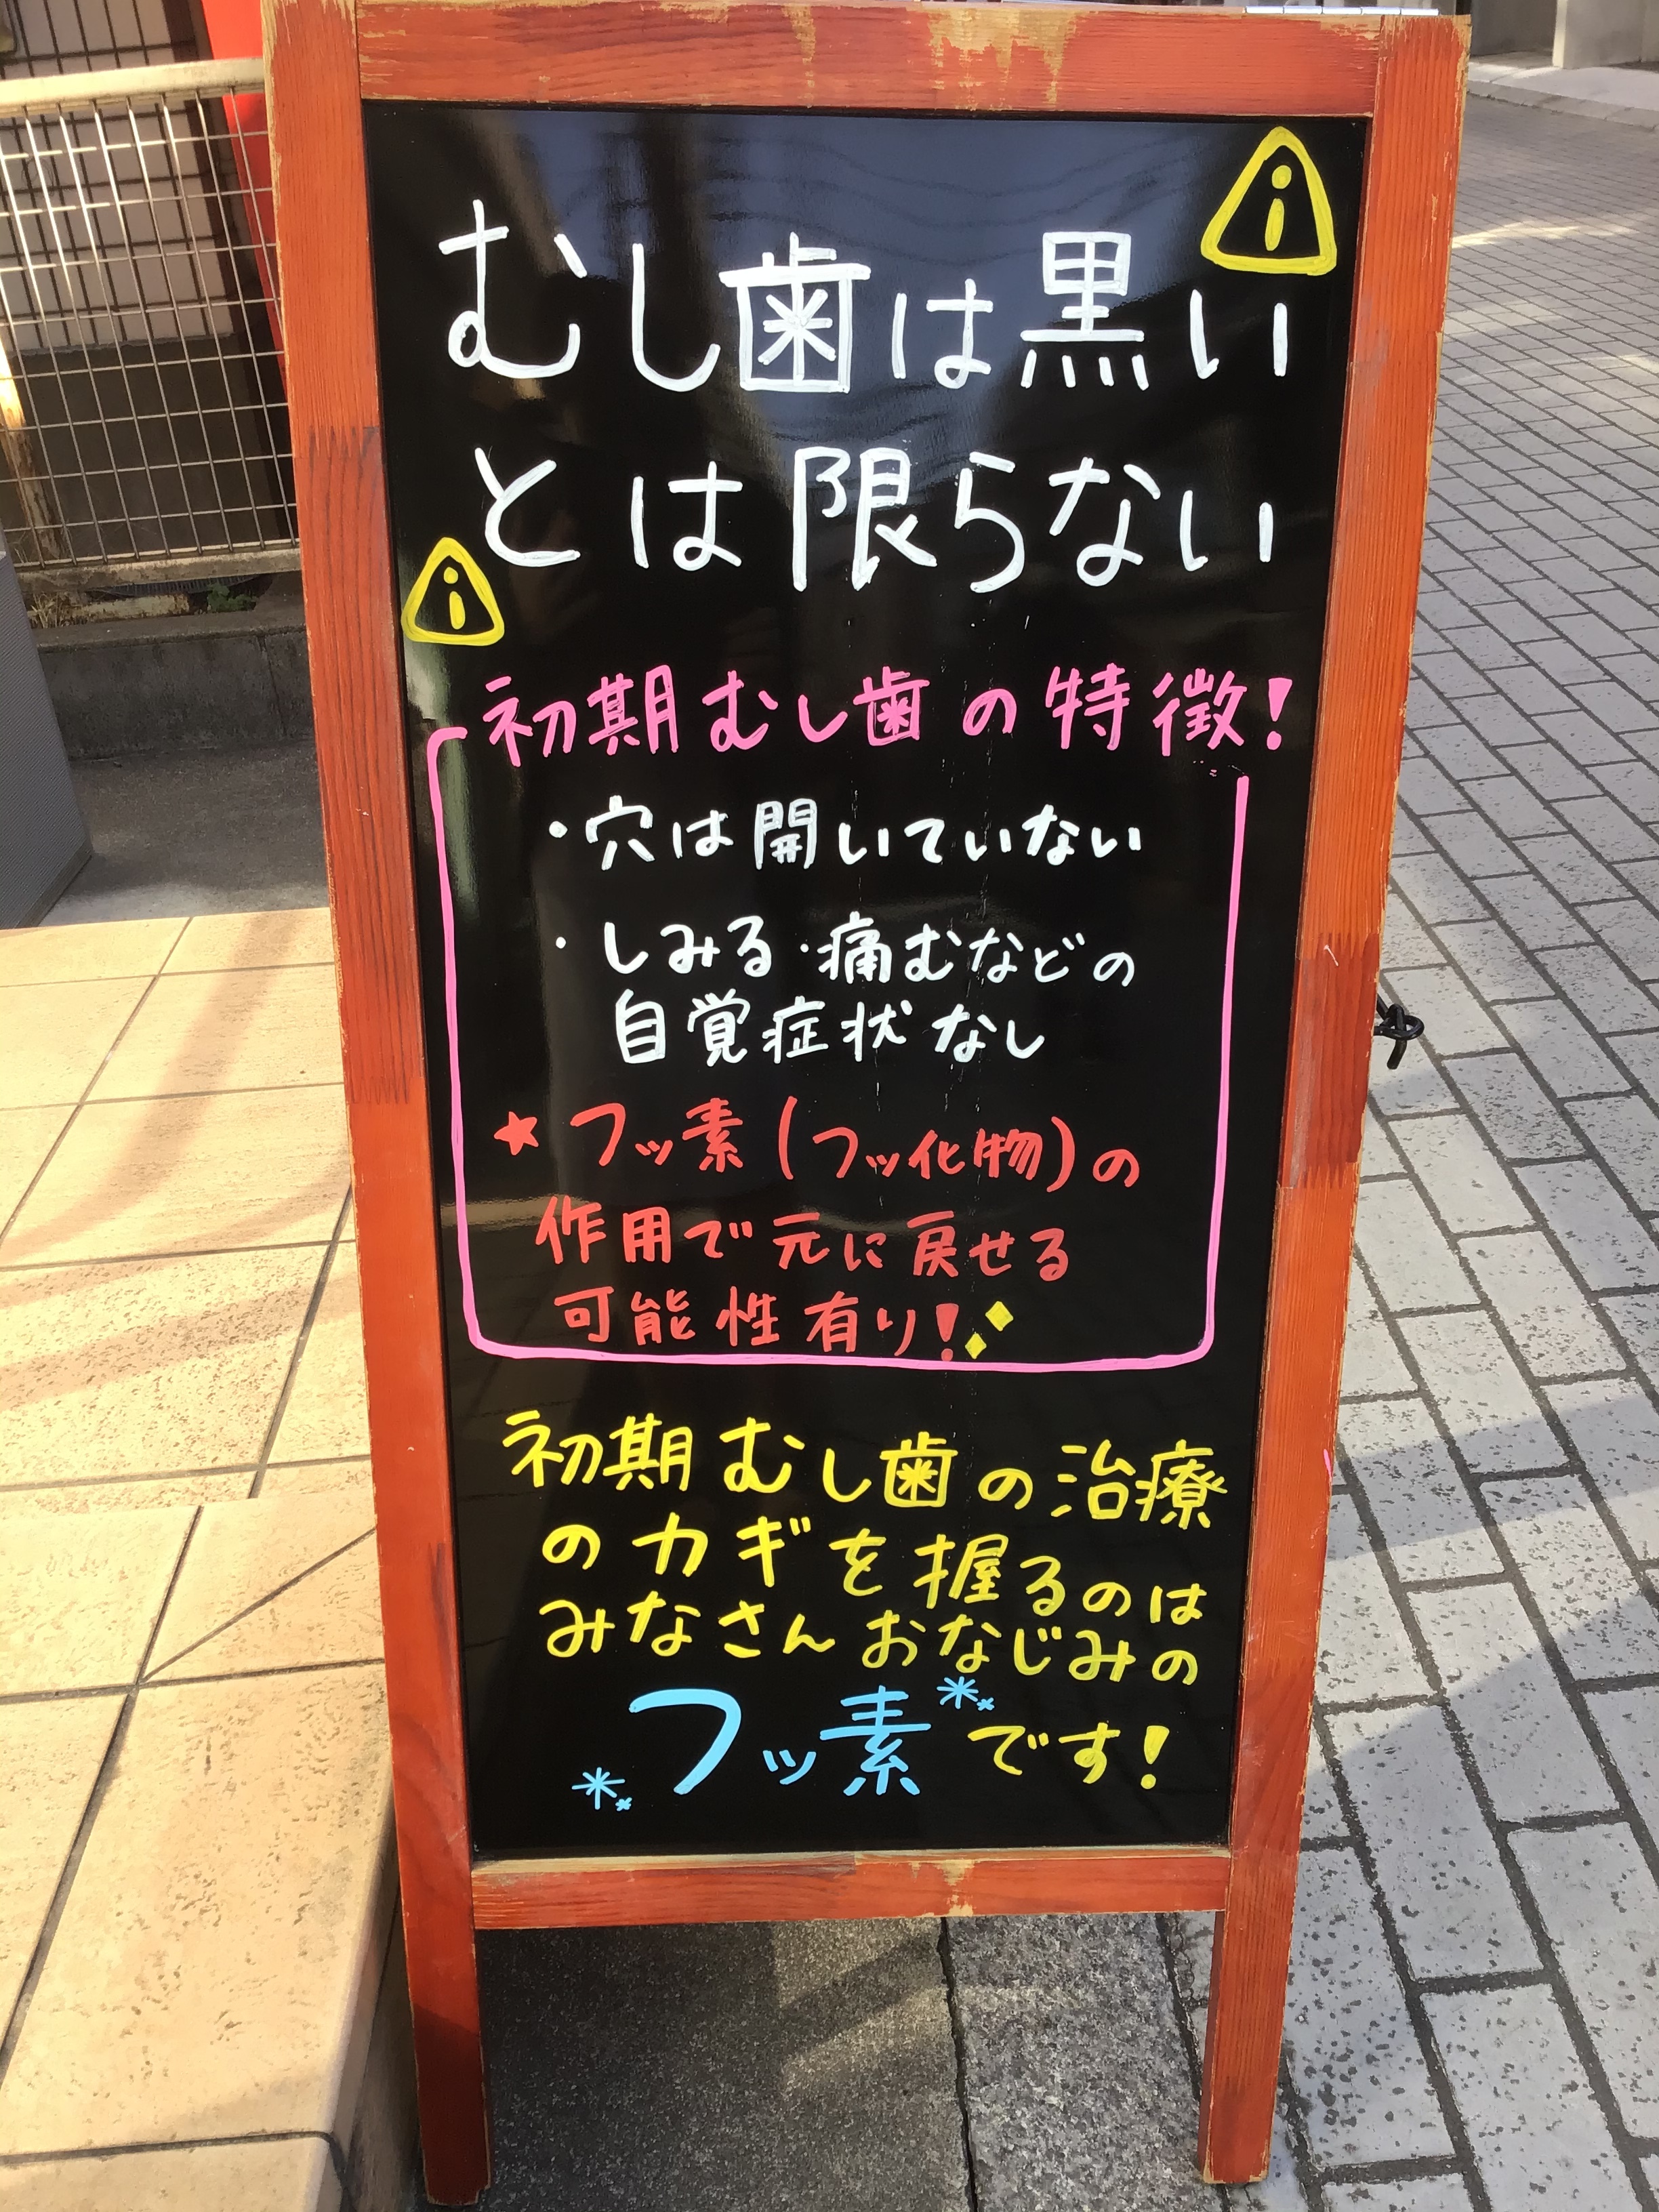 むし歯は黒い
とは限らない
初期むし歯の特徴!
・穴は開いていない
・しみる・痛むなどの
自覚症状なし
★フッ素(フッ化物)の
作用で元に戻せる
可能性有り!
初期むし歯の治療
のカギを握るのは
みなさんおなじみの
フッ素です!